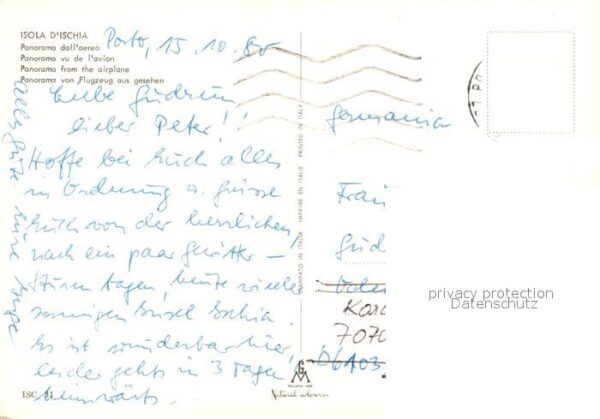 ISOLA D'ISCHIA
Panorama dall'aereo
Panorama vu de l'avion
Panorama from the airplane
Panorama von Flugzeug aus gesehen
Porto, 15.10.80
Liebe Gudrun!
lieber Peter!
Hoffe bei Euch alles
in Ordnung u. grüsse
Euch von der herrlichen,
nach ein paar Gewitter-
Sturm tagen, heute wieder
sonnigen Insel Ischia.
Es ist wunderbar hier,
leider gehts in 3 Tagen
heimwärts.
Alles Gute Eure
ISC 31
STAMPATO IN ITALIA IMPRIMÉ EN ITALIE PRINTED IN ITALY
Germania
Frau
Gud
7070
06103
privacy protection
Datenschutz